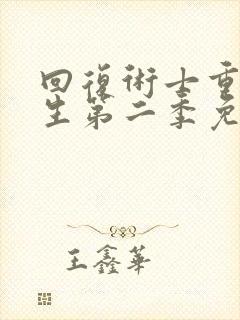 回復術士重
生第二季免
王鑫華